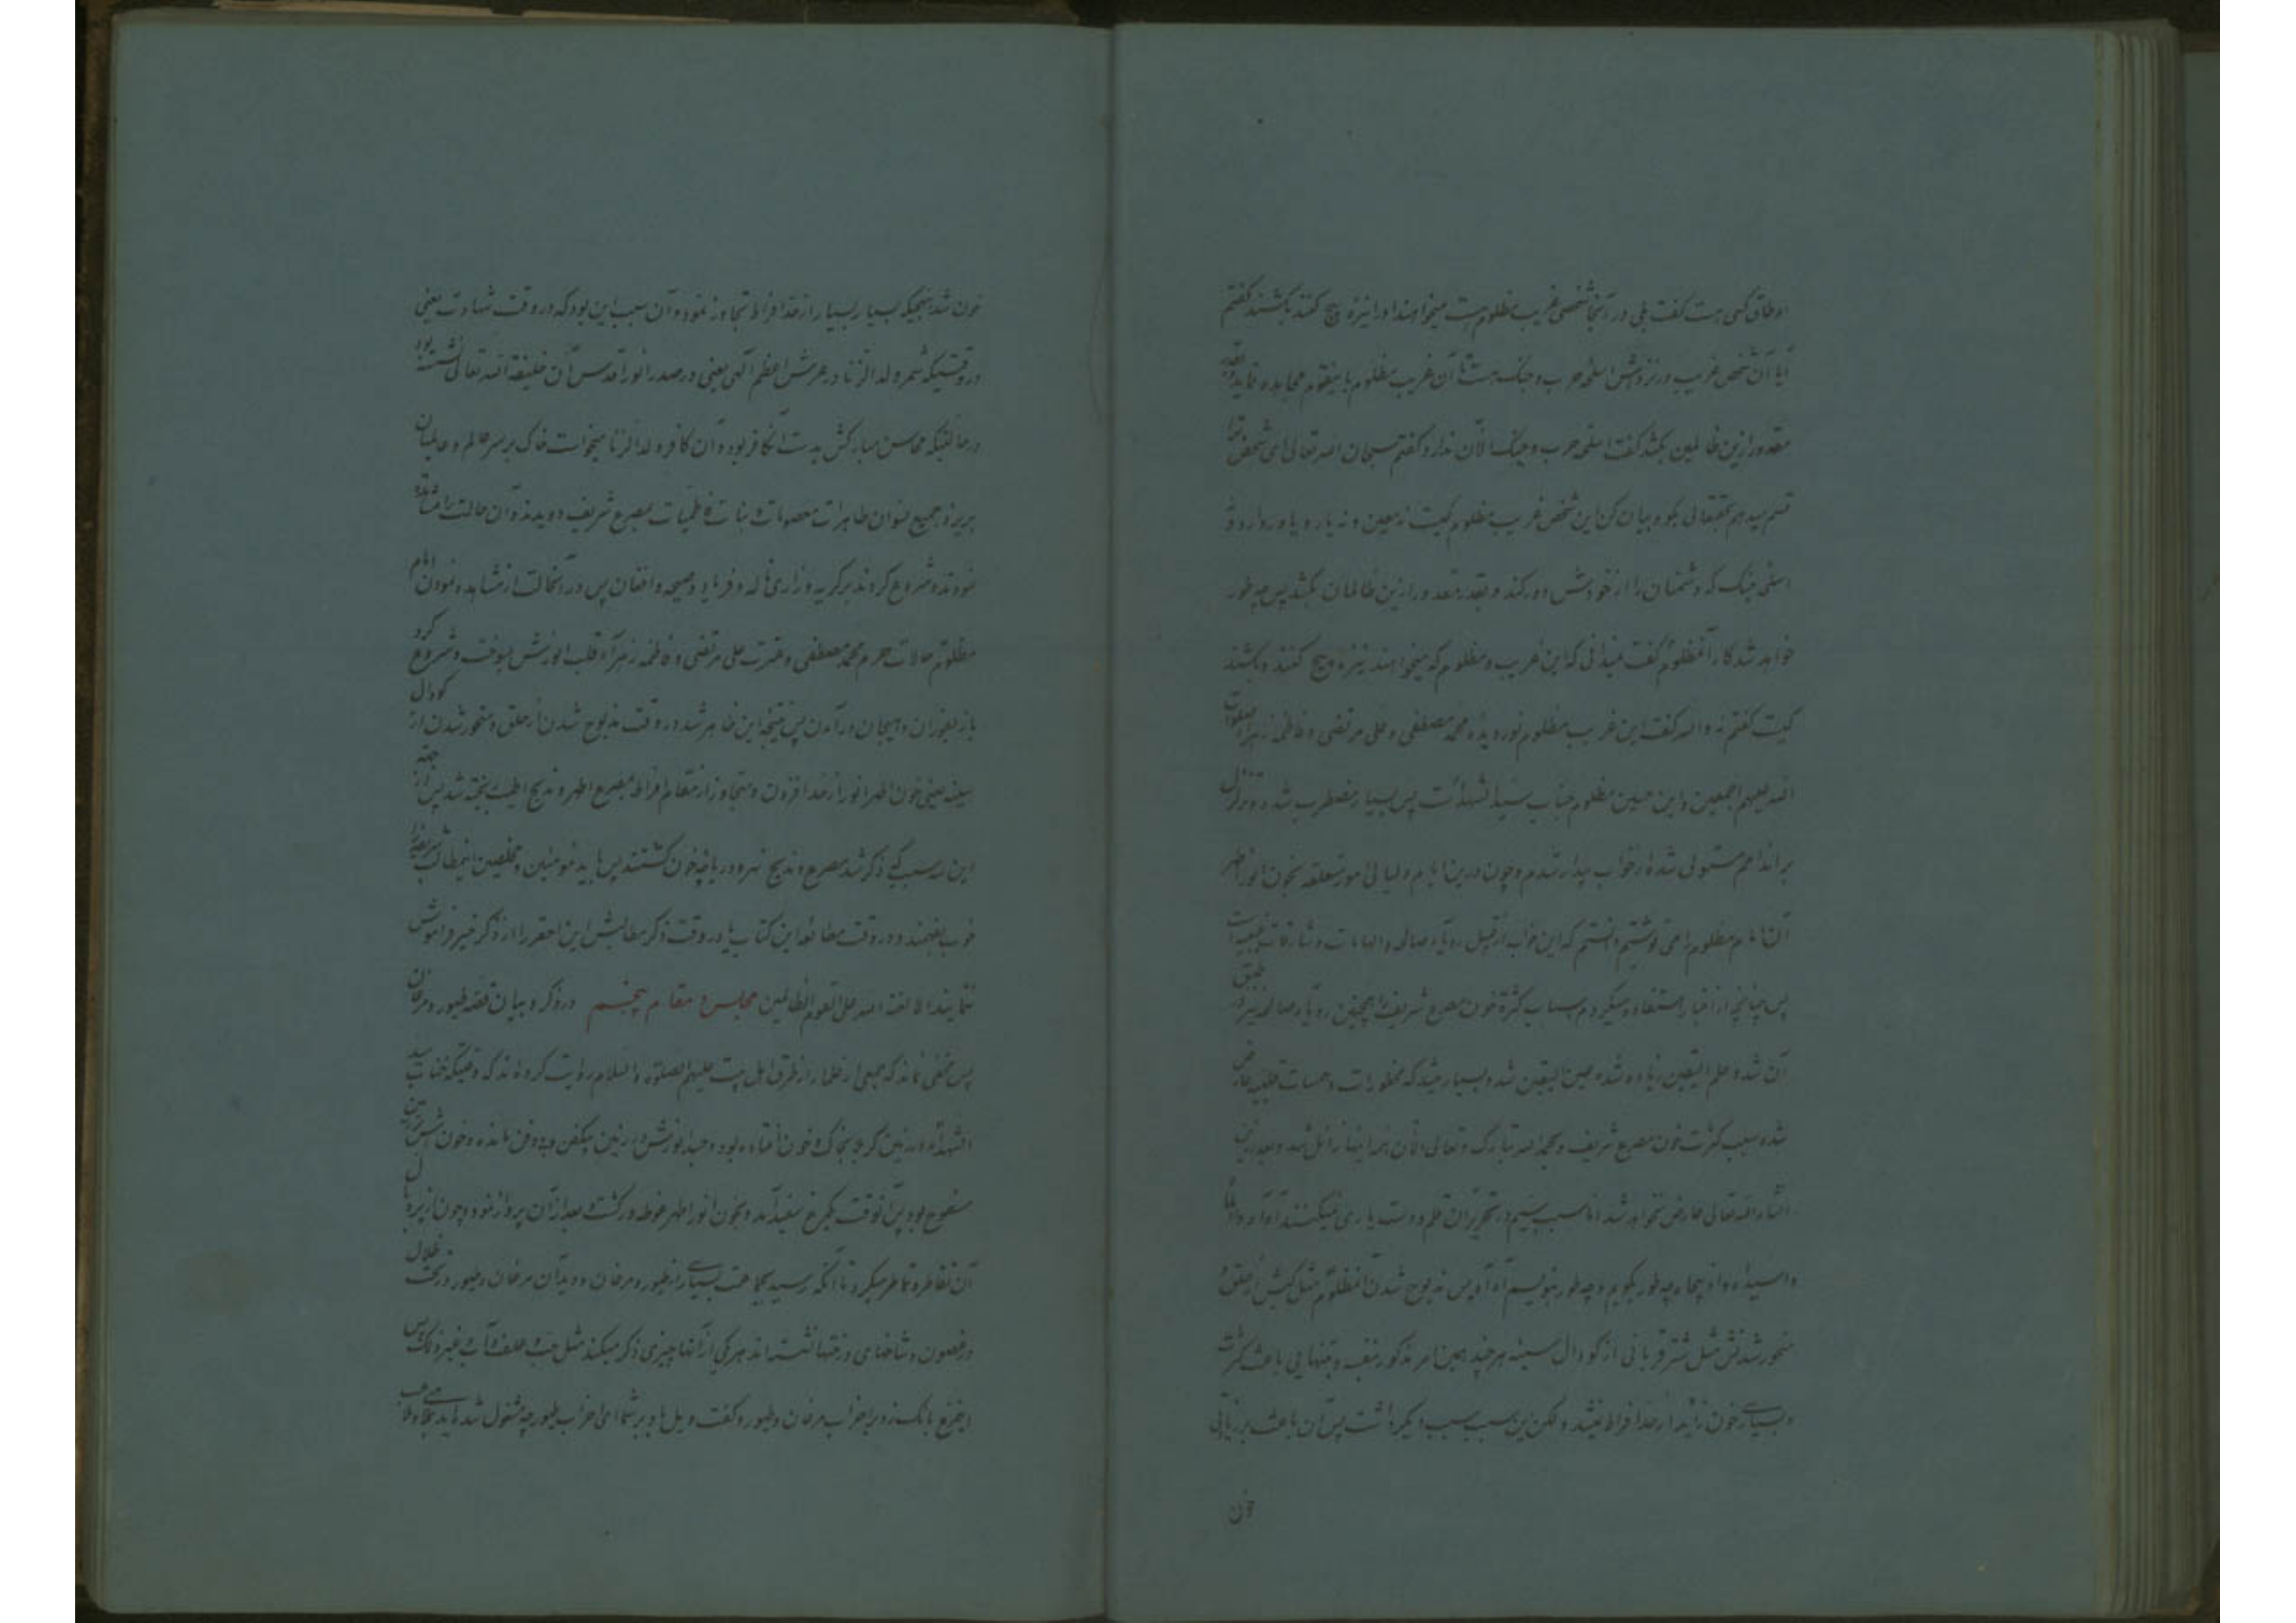 اوطاق کسی هست گفت بلی در آنجا شخصی غریب مظلوم هست میخواهند او را نیزه پیچ کنند بکشند گفتم
آیا آن شخص غریب در نزدش اسلحه حرب و جنک هست تا آن غریب مظلوم با اینقوم مجاهده نماید بقدر
مقدور ازین ظالمین بکشد گفت اسلحه حرب و جنک الآن ندارد گفتم سبحان الله تعالی ای شخص ترا
قسم میدهم بحقتعالی بگو و بیان کن این شخص غریب مظلوم کیست نه معین و نه یار و یاور دارد و نه
اسلحه جنک که دشمنان را از خودش دور کند و بقدر مقدور ازین ظالمان بکشد پس چه طور
خواهد شد کار آنمظلوم گفت میدانی که این غریب و مظلوم که میخواهند نیزه پیچ کنند و بکشند
کیست گفتم نه والله گفت این غریب مظلوم نور دیده محمد مصطفی و علی مرتضی و فاطمه زهرا صلوات
الله علیهم اجمعین و این حسین مظلوم جناب سید الشهداء است پس بسیار مضطرب شده و تزلزل
بر اندامم مستولی شده از خواب بیدار شدم و چون درین ایام و لیالی امور متعلقه بخون انور اطهر
آن امام مظلوم را می نوشتم دانستم که این خواب از قبیل رویاء صالحه و الهامات و اشارات غیبیه است
پس چنانچه از اخبار استفاده میکردم اسباب کثرة خون مصرع شریف را همچنین رویاء صالحه نیز بر طبق
آن شد و علم الیقین زیاده شده عین الیقین شد و بسیار میشد که خطورات و حسیات قلبیه عارض
شده بسبب کثرت خون مصرع شریف و بحمد الله تبارک و تعالی الآن همه اینها زائل شد و بعد ازین
انشاء الله تعالی عارض نخواهد شد اما سبب سیم در تحریر آن قلم و دست یاری نمیکنند آه آه وا اماما
وا سیداه وا ذبیحاه چه طور بگویم و چه طور بنویسم آه آه پس مذبوح شدن آنمظلوم مثل کبش از حلق و
منحور شدنش مثل شتر قربانی از کودال سینه هر چند همین امر مذکور بنفسه و بتنهایی باعث کثرت
و بسیاری خون زائد از حد افراط میشد و لکن این سبب سبب دیگر داشت پس آن باعث بر زیادتی
خون
خون شد بهیجیکه بسیار بسیار از حد افراط تجاوز نمود و آن سبب این بود که در وقت شهادت یعنی
در وقتیکه شمر ولد الزنا در عرش اعظم آلهی یعنی در صدر انور اقدس آن خلیفة الله تعالی نشسته بود
در حالتیکه محاسن مبارکش بدست آنکافر بود و آن کافر ولد الزنا میخواست خاک بر سر عالم و عالمیان
بریزد جمیع نسوان طاهرات معصومات و بنات فاطمیات بمصرع شریف دویدند و آن حالت را مشاهده
نمودند و شروع کردند بر کریه و زاری و ناله و فریاد و صیحه و افغان پس در آنحالت از مشاهده نمودن امام
مظلوم حالات حرم محمد مصطفی و عترت علی مرتضی و فاطمه زهراء قلب انورش بسوخت و شروع کرد
باز بفوران و هیجان در آمدن پس نتیجه این ظاهر شد در وقت مذبوح شدن از حلق و منحور شدن از کودال
سینه یعنی خون اطهر انور از حد افزون و متجاوز از مقام افراط بمصرع اطهر و مذبح اطیب ریخته شد پس از جهة
این سه سبب که ذکر شد مصرع و مذبح نهر و دریاچه خون گشتند پس باید مومنین و مخلصین اینمطالب شریفه را
خوب بفهمند و در وقت مطالعه این کتاب یا در وقت ذکر مطالبش این احقر را از ذکر خیر فراموش
ننمایند الا لعنة الله علی القوم الظالمین مجلس و مقام پنجم در ذکر و بیان قصه طیور و مرغان
پس مخفی نماند که جمعی از علماء از طرق اهل بیت علیهم الصلوة و السلام روایت کرده اند که وقتیکه جناب سید
الشهداء در زمین کربلا بخاک و خون افتاده بود و جسد انورش در زمین بیکفن و بیدفن مانده و خون شریفش بر زمین
مسفوح بود پس آنوقت یکمرغ سفید آمد و بخون انور اطهر غوطه ور گشت و بعد از آن پرواز نمود و چون از پر و بال
آن تقاطر و تماطر میکرد تا آنکه رسید بجماعت بسیاری از طیور و مرغان و دید آن مرغان و طیور در تحت ظلال
در غصون و شاخهای درختها نشسته اند هر یکی از آنها چیزی ذکر میکند مثل حب و علف و آب و غیر ذلک پس
اینمرغ بانک زد بر احزاب مرغان و طیور و گفت ویل باد بر شما ای احزاب طیور چه مشغول شده اید